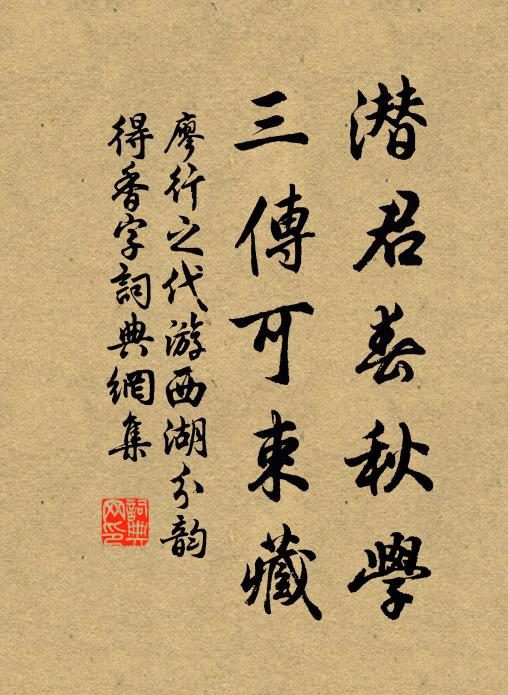 潜君春秋學
三傳可束藏
廖行之代游西湖分韵
得香字詞典網集
詞典网印